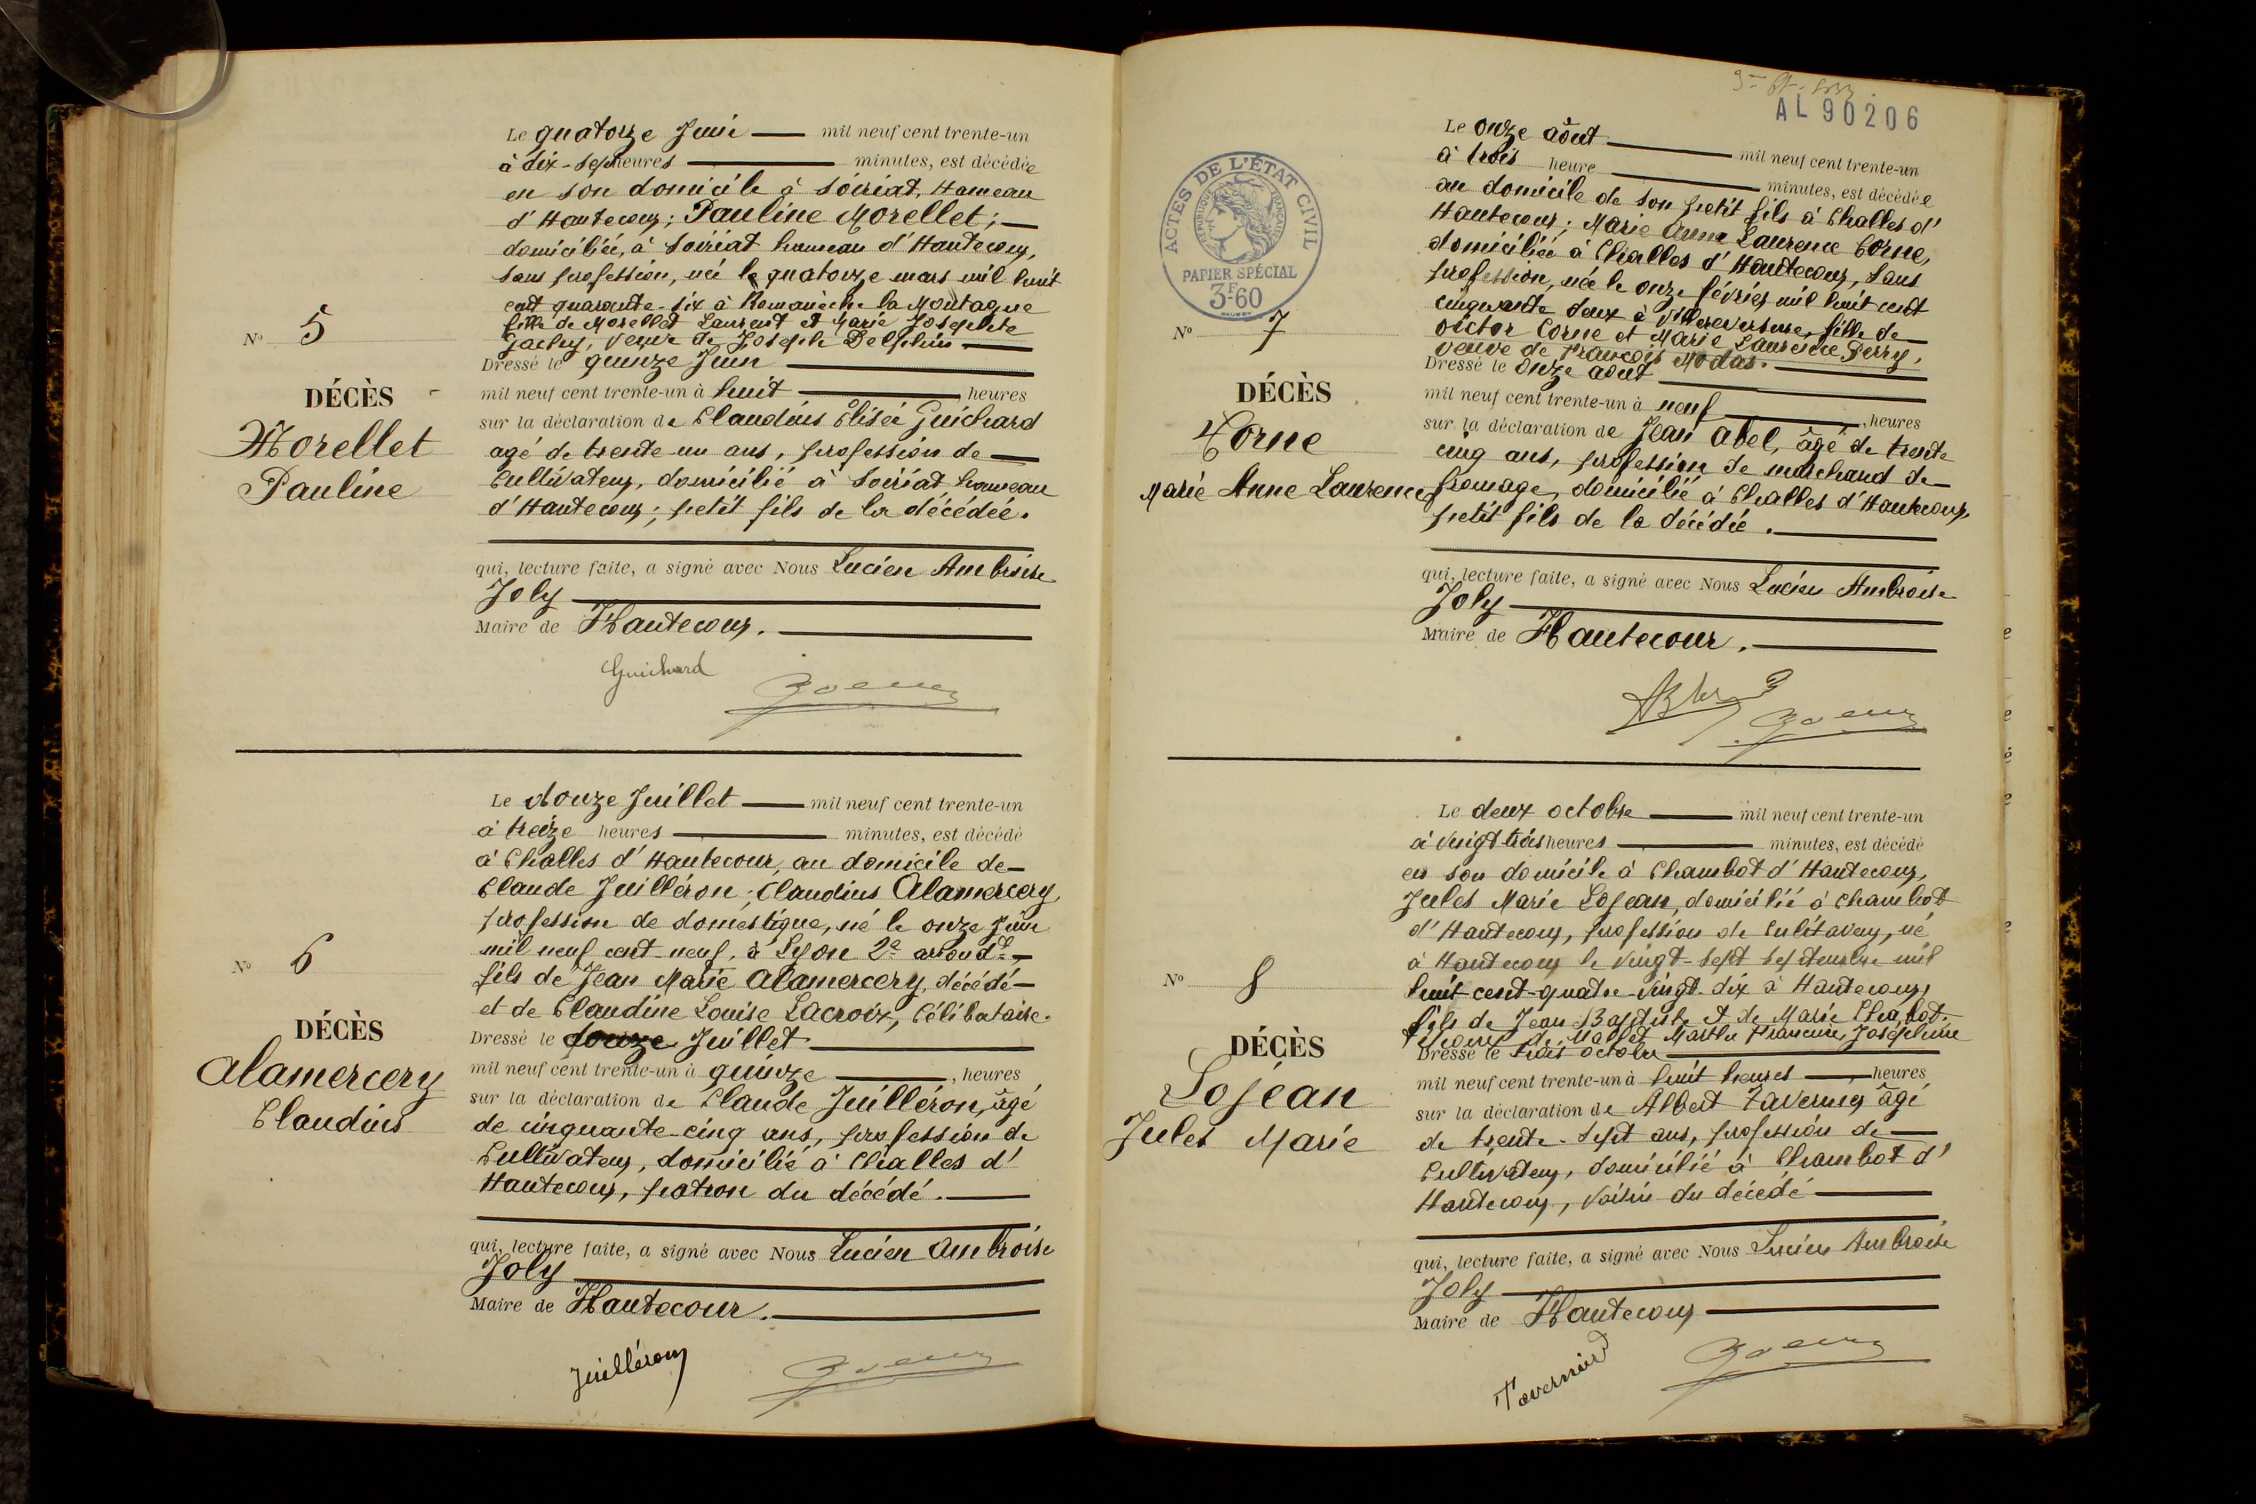 Le quatorze Juin mil neuf cent trente-un
à dix-sept heures minutes, est décédée
en son domicile à Soiriat, Hameau
d'Hautecour; Pauline Morellet;
domiciliée, à Soiriat hameau d'Hautecour,
sans profession, née le quatorze mars mil huit
cent quarante-six à Romanèche la Montagne
fille de Morellet Laurent et Marie Josephte
veuve de Joseph Delphin
Nº 5
Dressé le quinze Juin
DÉCÈS
Morellet
Pauline
mil neuf cent trente-un à huit heures
sur la déclaration de Claudius Elisée Guichard
agé de trente un ans, profession de
Cultivateur, domicilié à Soiriat hameau
d'Hautecour; petit fils de la décédée.
qui, lecture faite, a signé avec Nous Lucien Ambroise
Joly
Maire de Hautecour.
Guichard
Le douze Juillet mil neuf cent trente-un
à treize heures minutes, est décédé
à Challes d'Hautecour, au domicile de
Claude Juilléron; Claudius Alamercery,
profession de domestique, né le onze Juin
mil neuf cent neuf, à Lyon 2e arrondt
fils de Jean Marie Alamercery, décédé
et de Claudine Louise Lacroix, Célibataire.
Nº 6
DÉCÈS
Alamercery
Claudius
Dressé le douze Juillet
mil neuf cent trente-un à quinze, heures
sur la déclaration de Claude Juilléron, âgé
de cinquante-cinq ans, profession de
Cultivateur, domicilié à Challes d'
Hautecour, patron du décédé.
qui, lecture faite, a signé avec Nous Lucien Ambroise
Joly
Maire de Hautecour.
Juilléron
AL 90206
ACTES DE L'ÉTAT CIVIL
RÉPUBLIQUE FRANÇAISE
PAPIER SPÉCIAL
3F60
Le onze août mil neuf cent trente-un
à trois heure minutes, est décédée
au domicile de son petit fils à Challes d'
Hautecour; Marie Anne Laurence Corne,
domiciliée à Challes d'Hautecour, sans
profession, née le onze février mil huit cent
cinquante deux à Villereversure, fille de
Victor Corne et Marie Laurence Perry,
veuve de François Modas.
Nº 7
DÉCÈS
Corne
Marie Anne Laurence
Dressé le onze août
mil neuf cent trente-un à neuf, heures
sur la déclaration de Jean Abel, âgé de trente
cinq ans, profession de marchand de
fromage, domicilié à Challes d'Hautecour,
petit fils de la décédée.
qui, lecture faite, a signé avec Nous Lucien Ambroise
Joly
Maire de Hautecour.
Le deux octobre mil neuf cent trente-un
à vingt-trois heures minutes, est décédé
en son domicile à Chambot d'Hautecour,
Jules Marie Lojean, domicilié à Chambot
d'Hautecour, profession de Cultivateur, né
à Hautecour le vingt-sept septembre mil
huit cent-quatre-vingt-dix à Hautecour,
fils de Jean Baptiste et de Marie Chabot.
de Marthe Francine, Joséphine
Nº 8
DÉCÈS
Lojean
Jules Marie
Dressé le trois octobre
mil neuf cent trente-un à huit heures, heures
sur la déclaration de Albert Tavernier âgé
de trente-sept ans, profession de
Cultivateur, domicilié à Chambot d'
Hautecour, voisin du décédé
qui, lecture faite, a signé avec Nous Lucien Ambroise
Joly
Maire de Hautecour
Tavernier